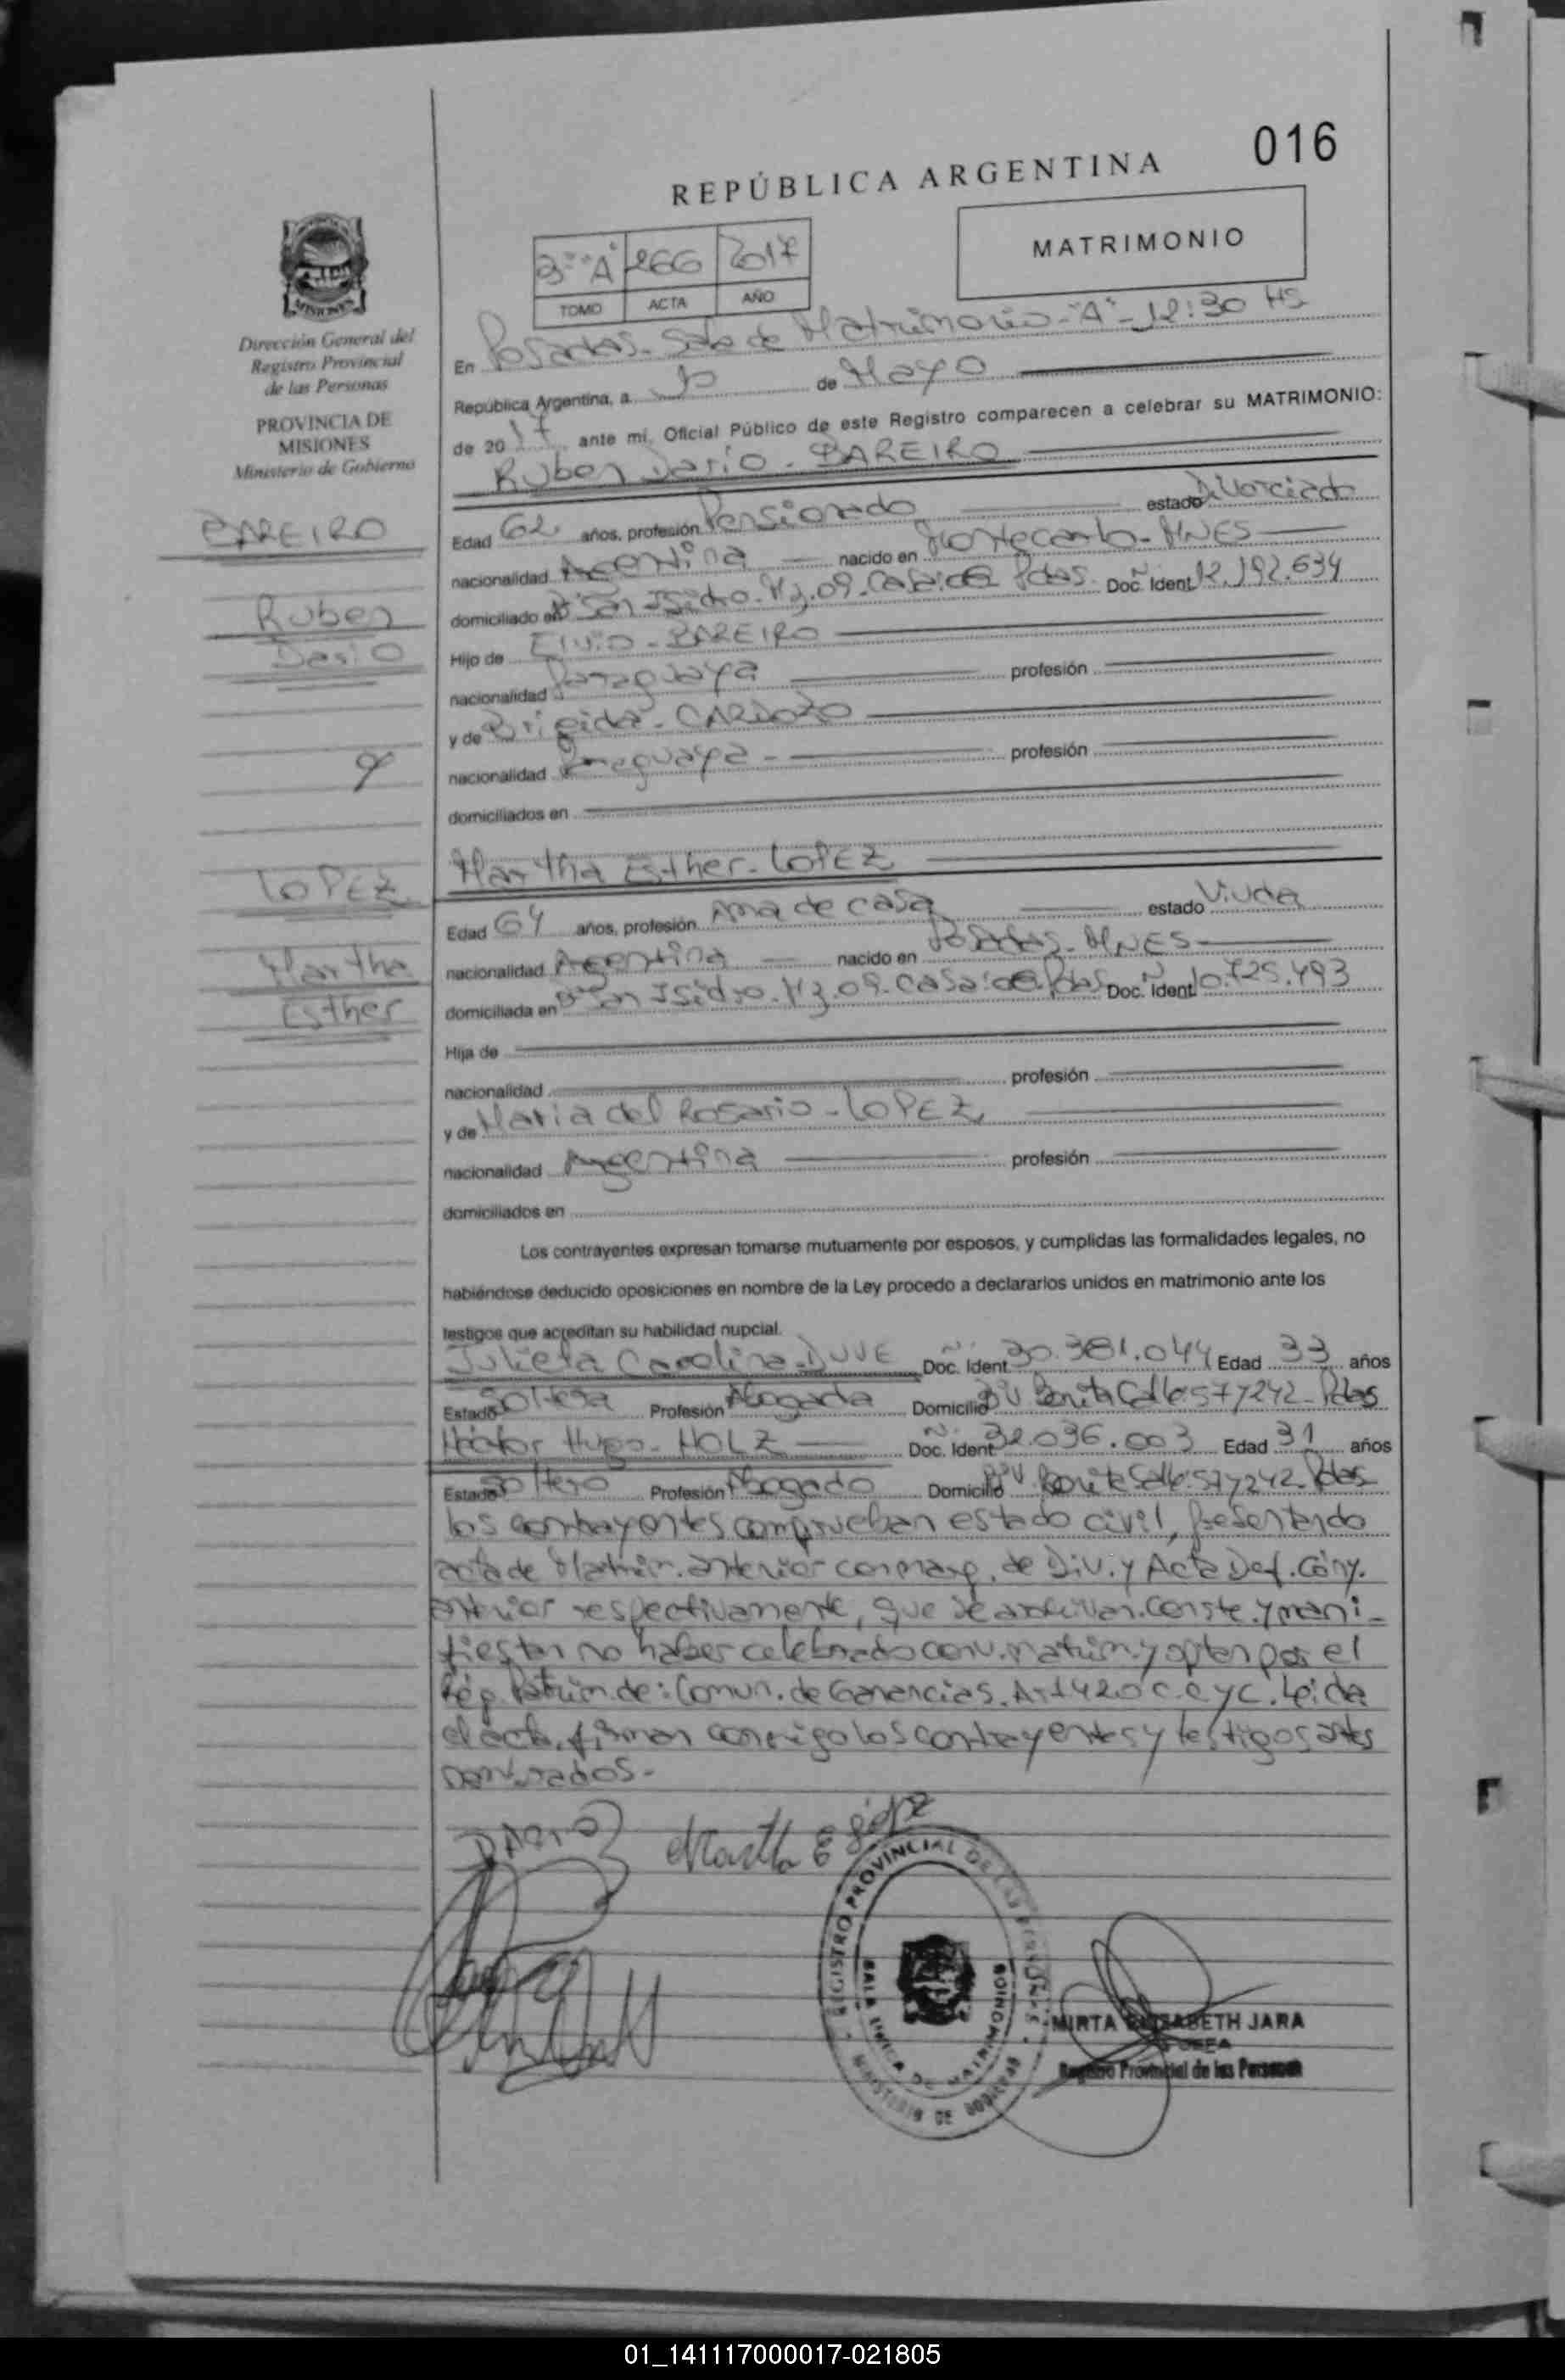 016
REPÚBLICA ARGENTINA
MATRIMONIO
3º "A" 266 2017
TOMO ACTA AÑO
Dirección General del
Registro Provincial
de las Personas
PROVINCIA DE
MISIONES
Ministerio de Gobierno
BAREIRO
Ruben
Dario
y
LOPEZ
Martha
Esther
En Posadas - Sala de Matrimonio - "A" - 12:30 HS
República Argentina, a de Mayo
de 2017 ante mi, Oficial Público de este Registro comparecen a celebrar su MATRIMONIO:
Ruben Dario - BAREIRO
Edad 62 años, profesión Pensionado estado Divorciado
nacionalidad Argentina nacido en Montecarlo - MNES
domiciliado en Bº San Isidro. Mz. 09. Casa: Pdas. Doc. Ident. Nº 12.192.634
Hijo de Elvio - BAREIRO
nacionalidad Paraguaya profesión
y de Brigida - CARDOZO
nacionalidad Paraguaya - profesión
domiciliados en
Martha Esther - LOPEZ
Edad 64 años, profesión Ama de casa estado Viuda
nacionalidad Argentina nacido en Posadas - MNES
domiciliada en Bº San Isidro. Mz. 09. Casa: Pdas Doc. Ident. Nº 10.725.493
Hija de
nacionalidad profesión
y de Maria del Rosario - LOPEZ
nacionalidad Argentina profesión
domiciliados en
Los contrayentes expresan tomarse mutuamente por esposos, y cumplidas las formalidades legales, no
habiéndose deducido oposiciones en nombre de la Ley procedo a declararlos unidos en matrimonio ante los
testigos que acreditan su habilidad nupcial.
Julieta Carolina - DUVE Doc. Ident. Nº 30.381.044 Edad 33 años
Estado Soltera Profesión Abogada Domicilio Bº V. Bonita Calle: 57 7242 - Pdas
Héctor Hugo - HOLZ Doc. Ident. Nº 32.036.003 Edad 31 años
Estado Soltero Profesión Abogado Domicilio Bº V. Bonita Calle: 57 7242 - Pdas
los contrayentes comprueban estado civil, Presentando
acta de Matrim. anterior con marg. de Div. y Acta Def. Cóny.
anterior respectivamente, que se archivan. Conste. y mani-
fiestan no haber celebrado conv. matrim. y optan por el
Rég. Patrim. de: Comun. de Ganancias. Art 420 C.C y C. Leida
el acta, firman conmigo los contrayentes y testigos antes
nombrados.-
DARIO
Martha E López
REGISTRO PROVINCIAL DE LAS PERSONAS
SALA UNICA DE MATRIMONIOS
MINISTERIO DE GOBIERNO
MIRTA ELIZABETH JARA
JEFA
Registro Provincial de las Personas
01_141117000017-021805